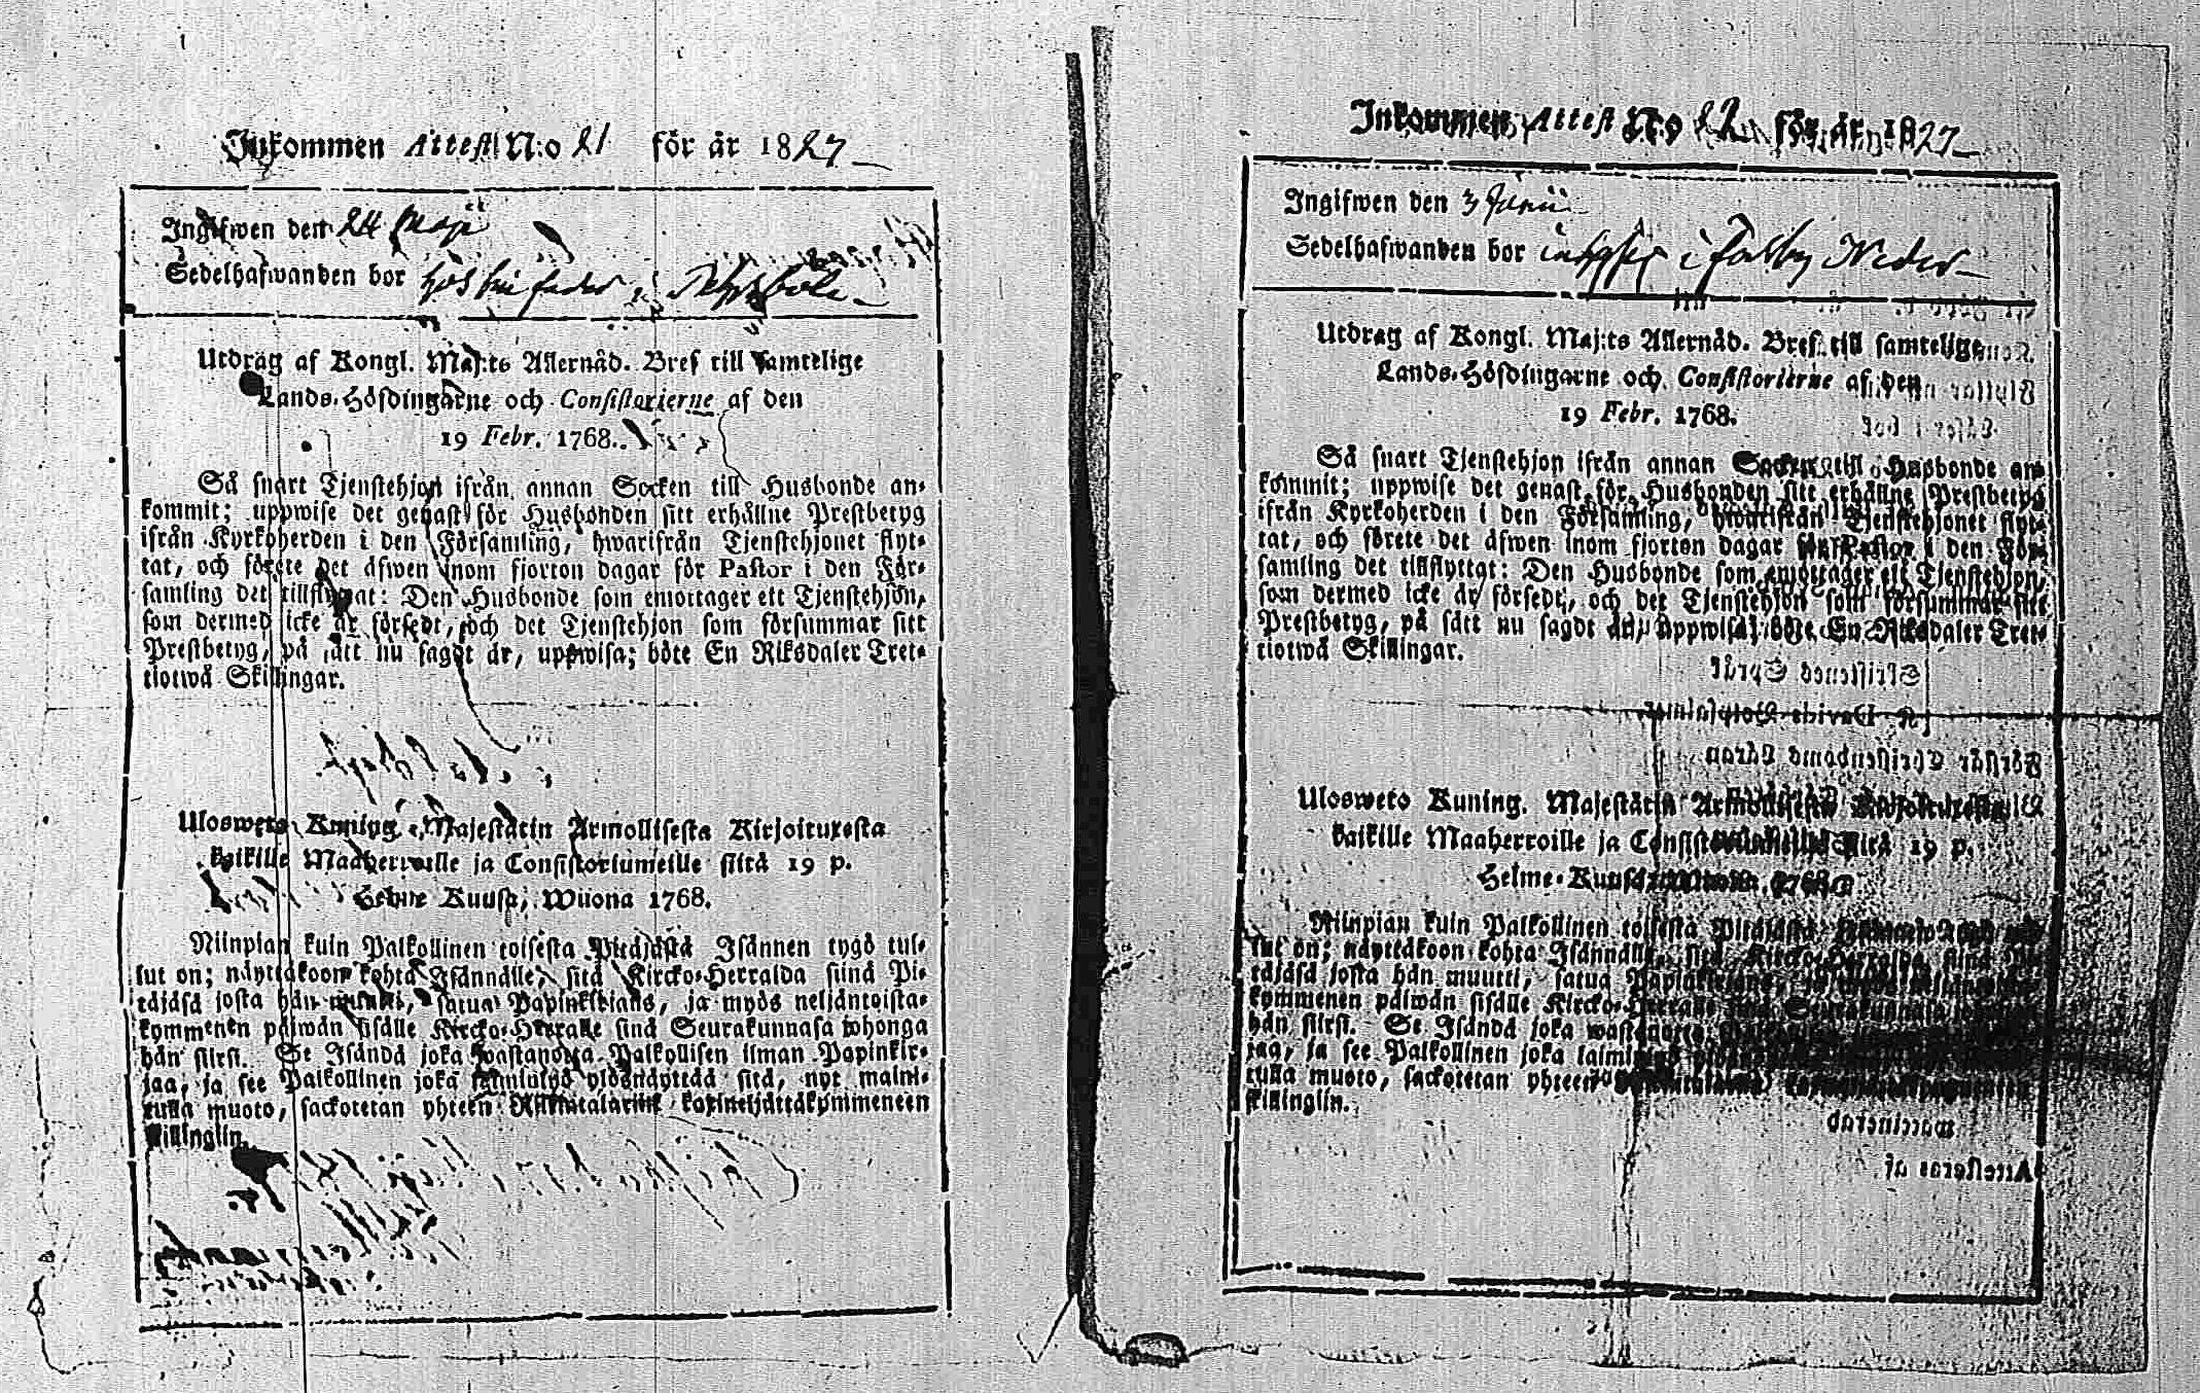 Inkommen Attest N:o 21 för år 1827
Ingifwen den 24 Maji
Sedelhafwanden bor hos sin fader i
Utdrag af Kongl. Maj:ts Allernåd. Bref till samtelige
Lands-Höfdingarne och Consistorierne af den
19 Febr. 1768.
Så snart Tjenstehjon ifrån annan Socken till Husbonde an-
kommit; uppwise det genast för Husbonden sitt erhållne Prestbetyg
ifrån Kyrkoherden i den Församling, hwarifrån Tjenstehjonet flyt-
tat, och förete det äfwen inom fjorton dagar för Pastor i den För-
samling det tillflyttat: Den Husbonde som emottager ett Tjenstehjon,
som dermed icke är försedt, och det Tjenstehjon som försummar sitt
Prestbetyg, på sätt nu sagdt är, uppwisa; böte En Riksdaler Tret-
tiotwå Skillingar.
Ulosweto Kuning. Majestätin Armollisesta Kirjoituxesta
kaikille Maaherroille ja Consistoriumeille siitä 19 p.
Helme Kuusa, Wuona 1768.
Niinpian kuin Palkollinen toisesta Pitäjästä Isännen tygö tul-
lut on; näyttäkoon kohta Isännälle, sitä Kircko-Herralda siinä Pi-
täjäsä josta hän muutti, satua Papinkirjans, ja myös neljäntoista-
kymmenen päiwän sisälle Kircko-Herralle siinä Seurakunnasa johonga
hän siirsi. Se Isändä joka wastanotta Palkollisen ilman Papinkir-
jaa, ja see Palkollinen joka laiminlyö ylösnäyttää sitä, nyt maini-
tulla muoto, sackotetan yhteen Rikintalariin kaxineljättäkymmeneen
killinglin.
Inkommen Attest N:o 22 för år 1827
Ingifwen den 3 Junii
Sedelhafwanden bor inhyses i Forsby Neder
Utdrag af Kongl. Maj:ts Allernåd. Bref till samtelige
Lands-Höfdingarne och Consistorierne af den
19 Febr. 1768.
Så snart Tjenstehjon ifrån annan Socken till Husbonde an-
kommit; uppwise det genast för Husbonden sitt erhållne Prestbetyg
ifrån Kyrkoherden i den Församling, hwarifrån Tjenstehjonet flyt-
tat, och förete det äfwen inom fjorton dagar för Pastor i den För-
samling det tillflyttat: Den Husbonde som emottager ett Tjenstehjon,
som dermed icke är försedt, och det Tjenstehjon som försummar sitt
Prestbetyg, på sätt nu sagdt är, uppwisa; böte En Riksdaler Tret-
tiotwå Skillingar.
Ulosweto Kuning. Majestätin Armollisesta Kirjoituxesta
kaikille Maaherroille ja Consistoriumeille siitä 19 p.
Helme-Kuusa, 1768.
Niinpian kuin Palkollinen toisesta Pitäjästä
lut on; näyttäkoon kohta Isännälle, sitä Kircko-Herralda siinä
täjäsä josta hän muutti, satua Papinkirjans, ja
kymmenen päiwän sisälle Kircko-Herralle siinä Seurakunnasa
hän siirsi. Se Isändä joka wastanotta
jaa, ja see Palkollinen joka
tulla muoto, sackotetan yhteen
killinglin.